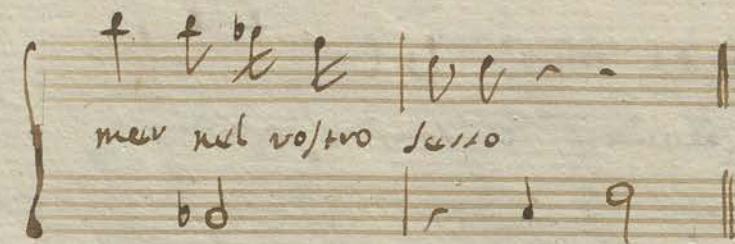 mer nel vostro sesso